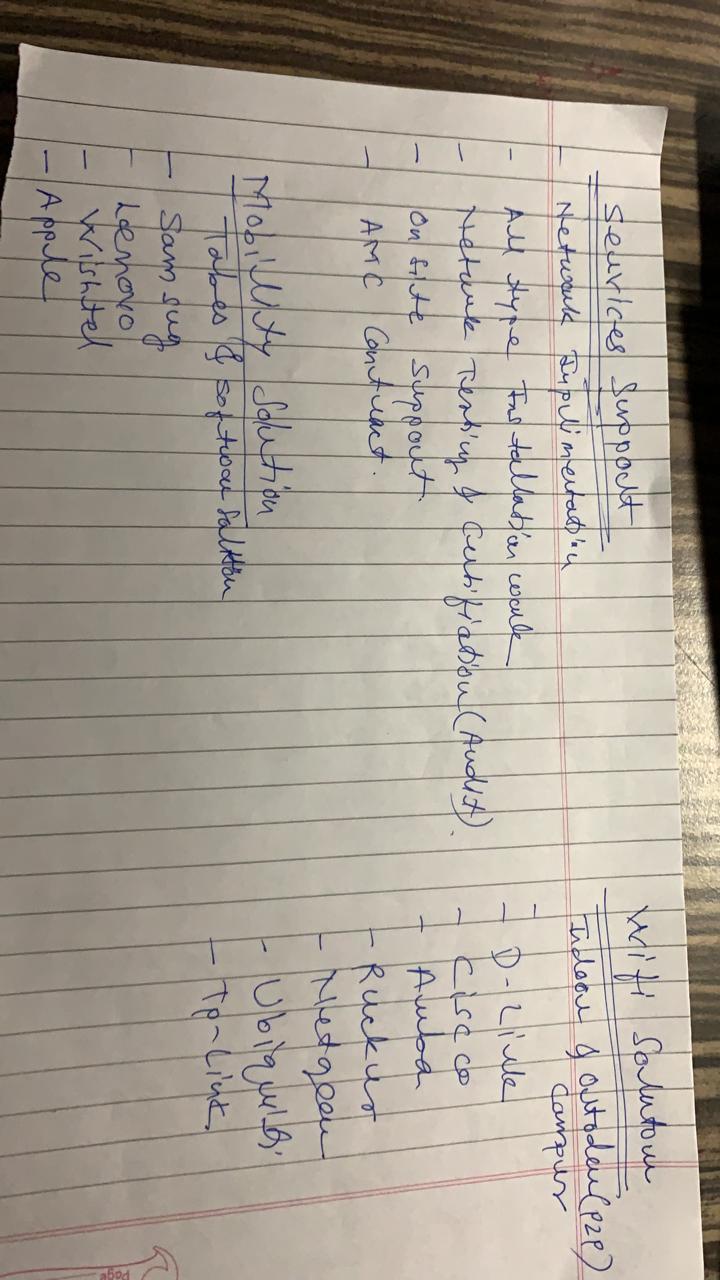 Services Support
- Network Implimentation
- All type Installation work
- Network Testing & Certifiation (Audit).
- On Site Support.
- AMC Contract.
Mobillity Solution
Tabes & software Salition
- Samsug
- Lenovo
- Wishtel
- Apple
Wifi Solution
Indoor & Outdoor (P2P)
Campus
-
- D-Link
- Cisco
- Aruba
- Ruckus
- Netgear
- Ubiquiti
- Tp-Link.
Page